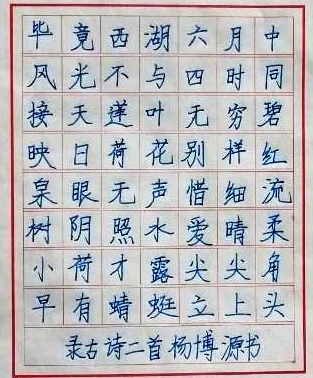 毕竟西湖六月中
风光不与四时同
接天莲叶无穷碧
映日荷花别样红
泉眼无声惜细流
树阴照水爱晴柔
小荷才露尖尖角
早有蜻蜓立上头
录古诗二首杨博源书